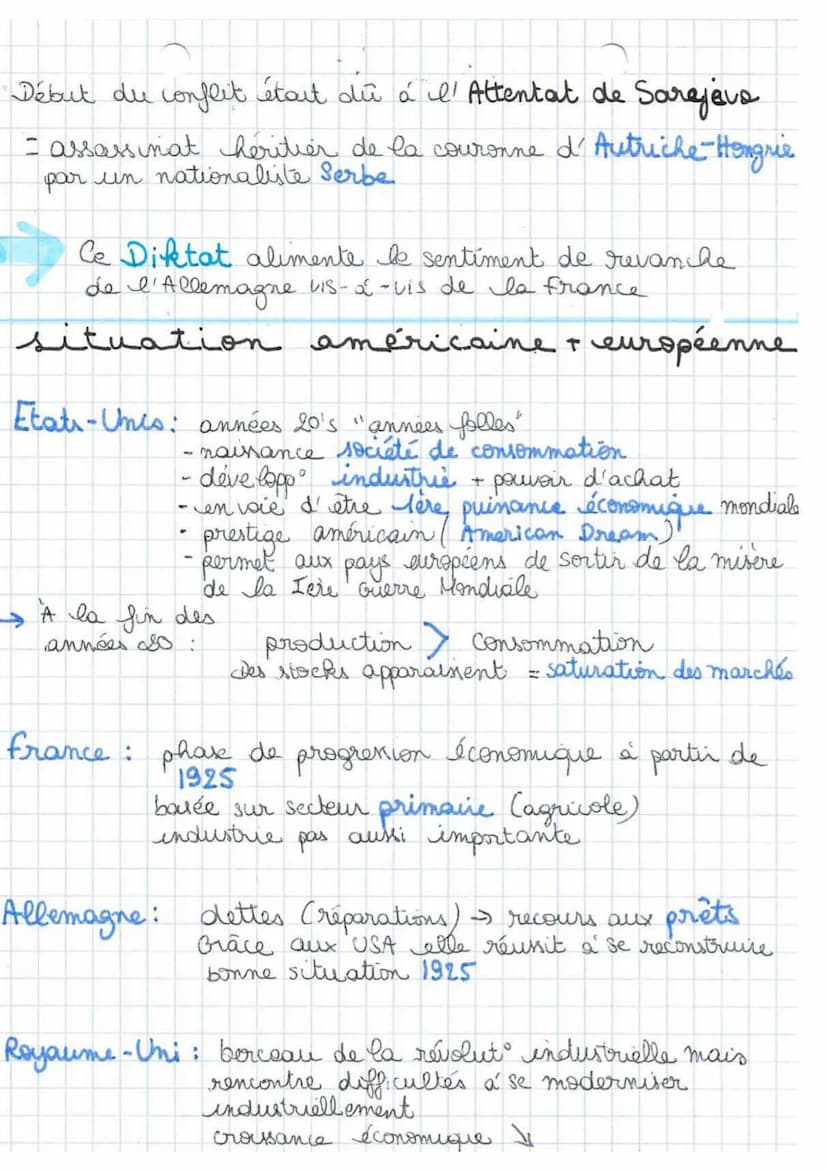 Début du conflit était dû à l'Attentat de Sarajevo
= assassinat héritier de la couronne d'Autriche-Hongrie
par un nationaliste Serbe
Ce Diktat alimente le sentiment de revanche
de l'Allemagne vis-à-vis de la France
situation américaine + européenne
Etats-Unis : années 20's "années folles"
- naissance société de consommation
- développ° industrie + pouvoir d'achat
- en voie d'être 1ère puissance économique mondiale
- prestige américain (American Dream)
- permet aux pays européens de sortir de la misère
de la Ière Guerre Mondiale
→ À la fin des
années 20 : production > consommation
Des stocks apparaissent = saturation des marchés
France : phase de progression économique à partir de
1925
basée sur secteur primaire (agricole)
industrie pas aussi importante
Allemagne : dettes (réparations) → recours aux prêts
Grâce aux USA elle réussit à se reconstruire
bonne situation 1925
Royaume-Uni : berceau de la révolut° industrielle mais
rencontre difficultés à se moderniser
industriellement
croissance économique ↘